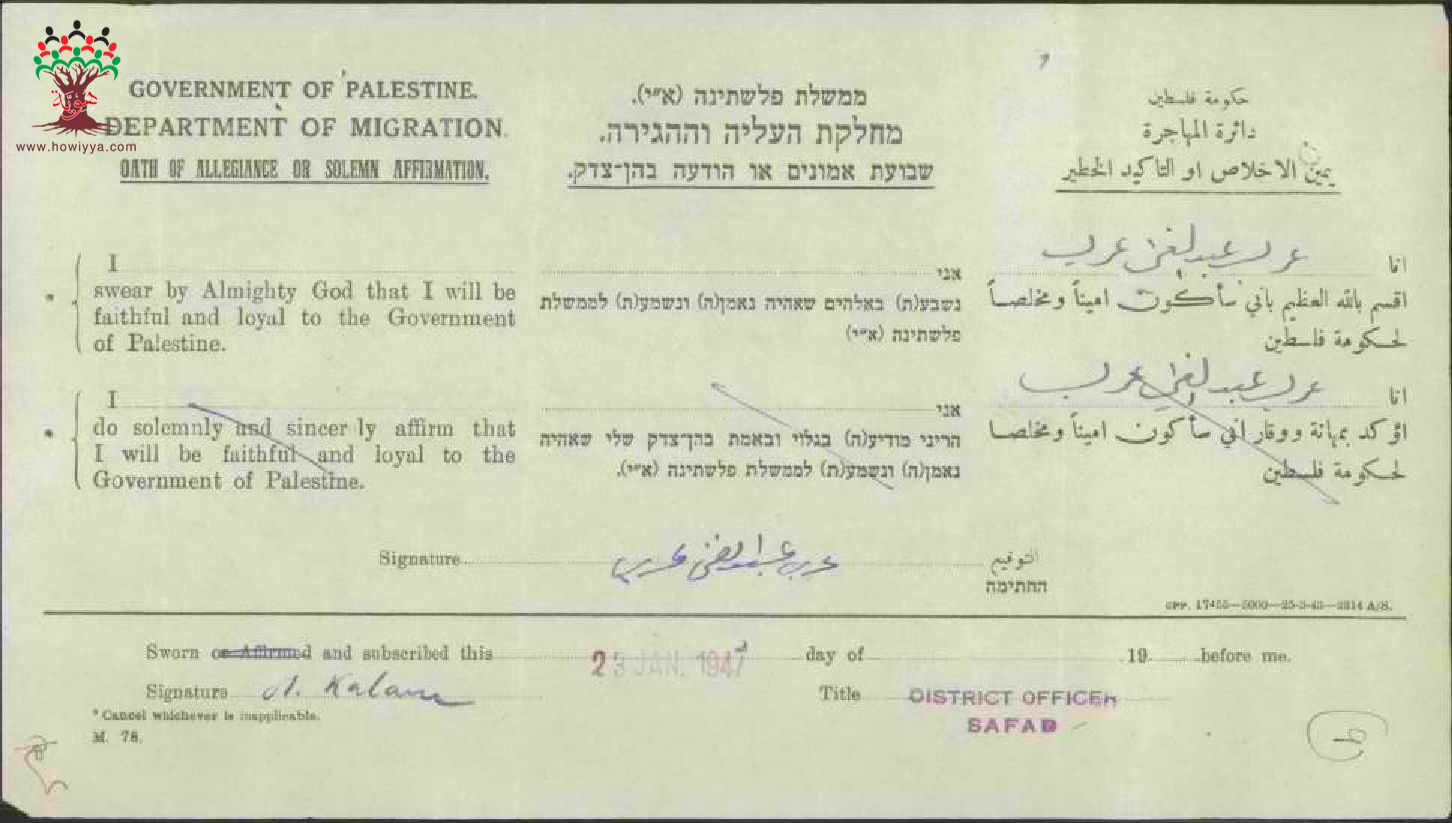 هوية
www.howiyya.com
GOVERNMENT OF PALESTINE.
DEPARTMENT OF MIGRATION.
OATH OF ALLEGIANCE OR SOLEMN AFFIRMATION.
ממשלת פלשתינה (א״י).
מחלקת העליה וההגירה.
שבועת אמונים או הודעה בהן־צדק.
حكومة فلسطين
دائرة المهاجرة
يمين الاخلاص او التأكيد الخطير
* I
swear by Almighty God that I will be
faithful and loyal to the Government
of Palestine.
אני
נשבע(ת) באלהים שאהיה נאמן(ה) ונשמע(ת) לממשלת
פלשתינה (א״י)
انا عبد الغني
اقسم بالله العظيم بأني سأكون اميناً ومخلصاً
لحكومة فلسطين
* I
do solemnly and sincerly affirm that
I will be faithful and loyal to the
Government of Palestine.
אני
הריני מודיע(ה) בגלוי ובאמת בהן־צדק שלי שאהיה
נאמן(ה) ונשמע(ת) לממשלת פלשתינה (א״י).
انا عبد الغني
اؤكد بمهانة ووقار اني سأكون اميناً ومخلصا
لحكومة فلسطين
Signature عبد الغني التوقيع
החתימה
GPP. 17455—5000—25-3-43—2314 A/S.
Sworn or Affirmed and subscribed this 23 JAN. 1947 day of 19 before me.
Signature Title DISTRICT OFFICER
SAFAD
* Cancel whichever is inapplicable.
M. 78.